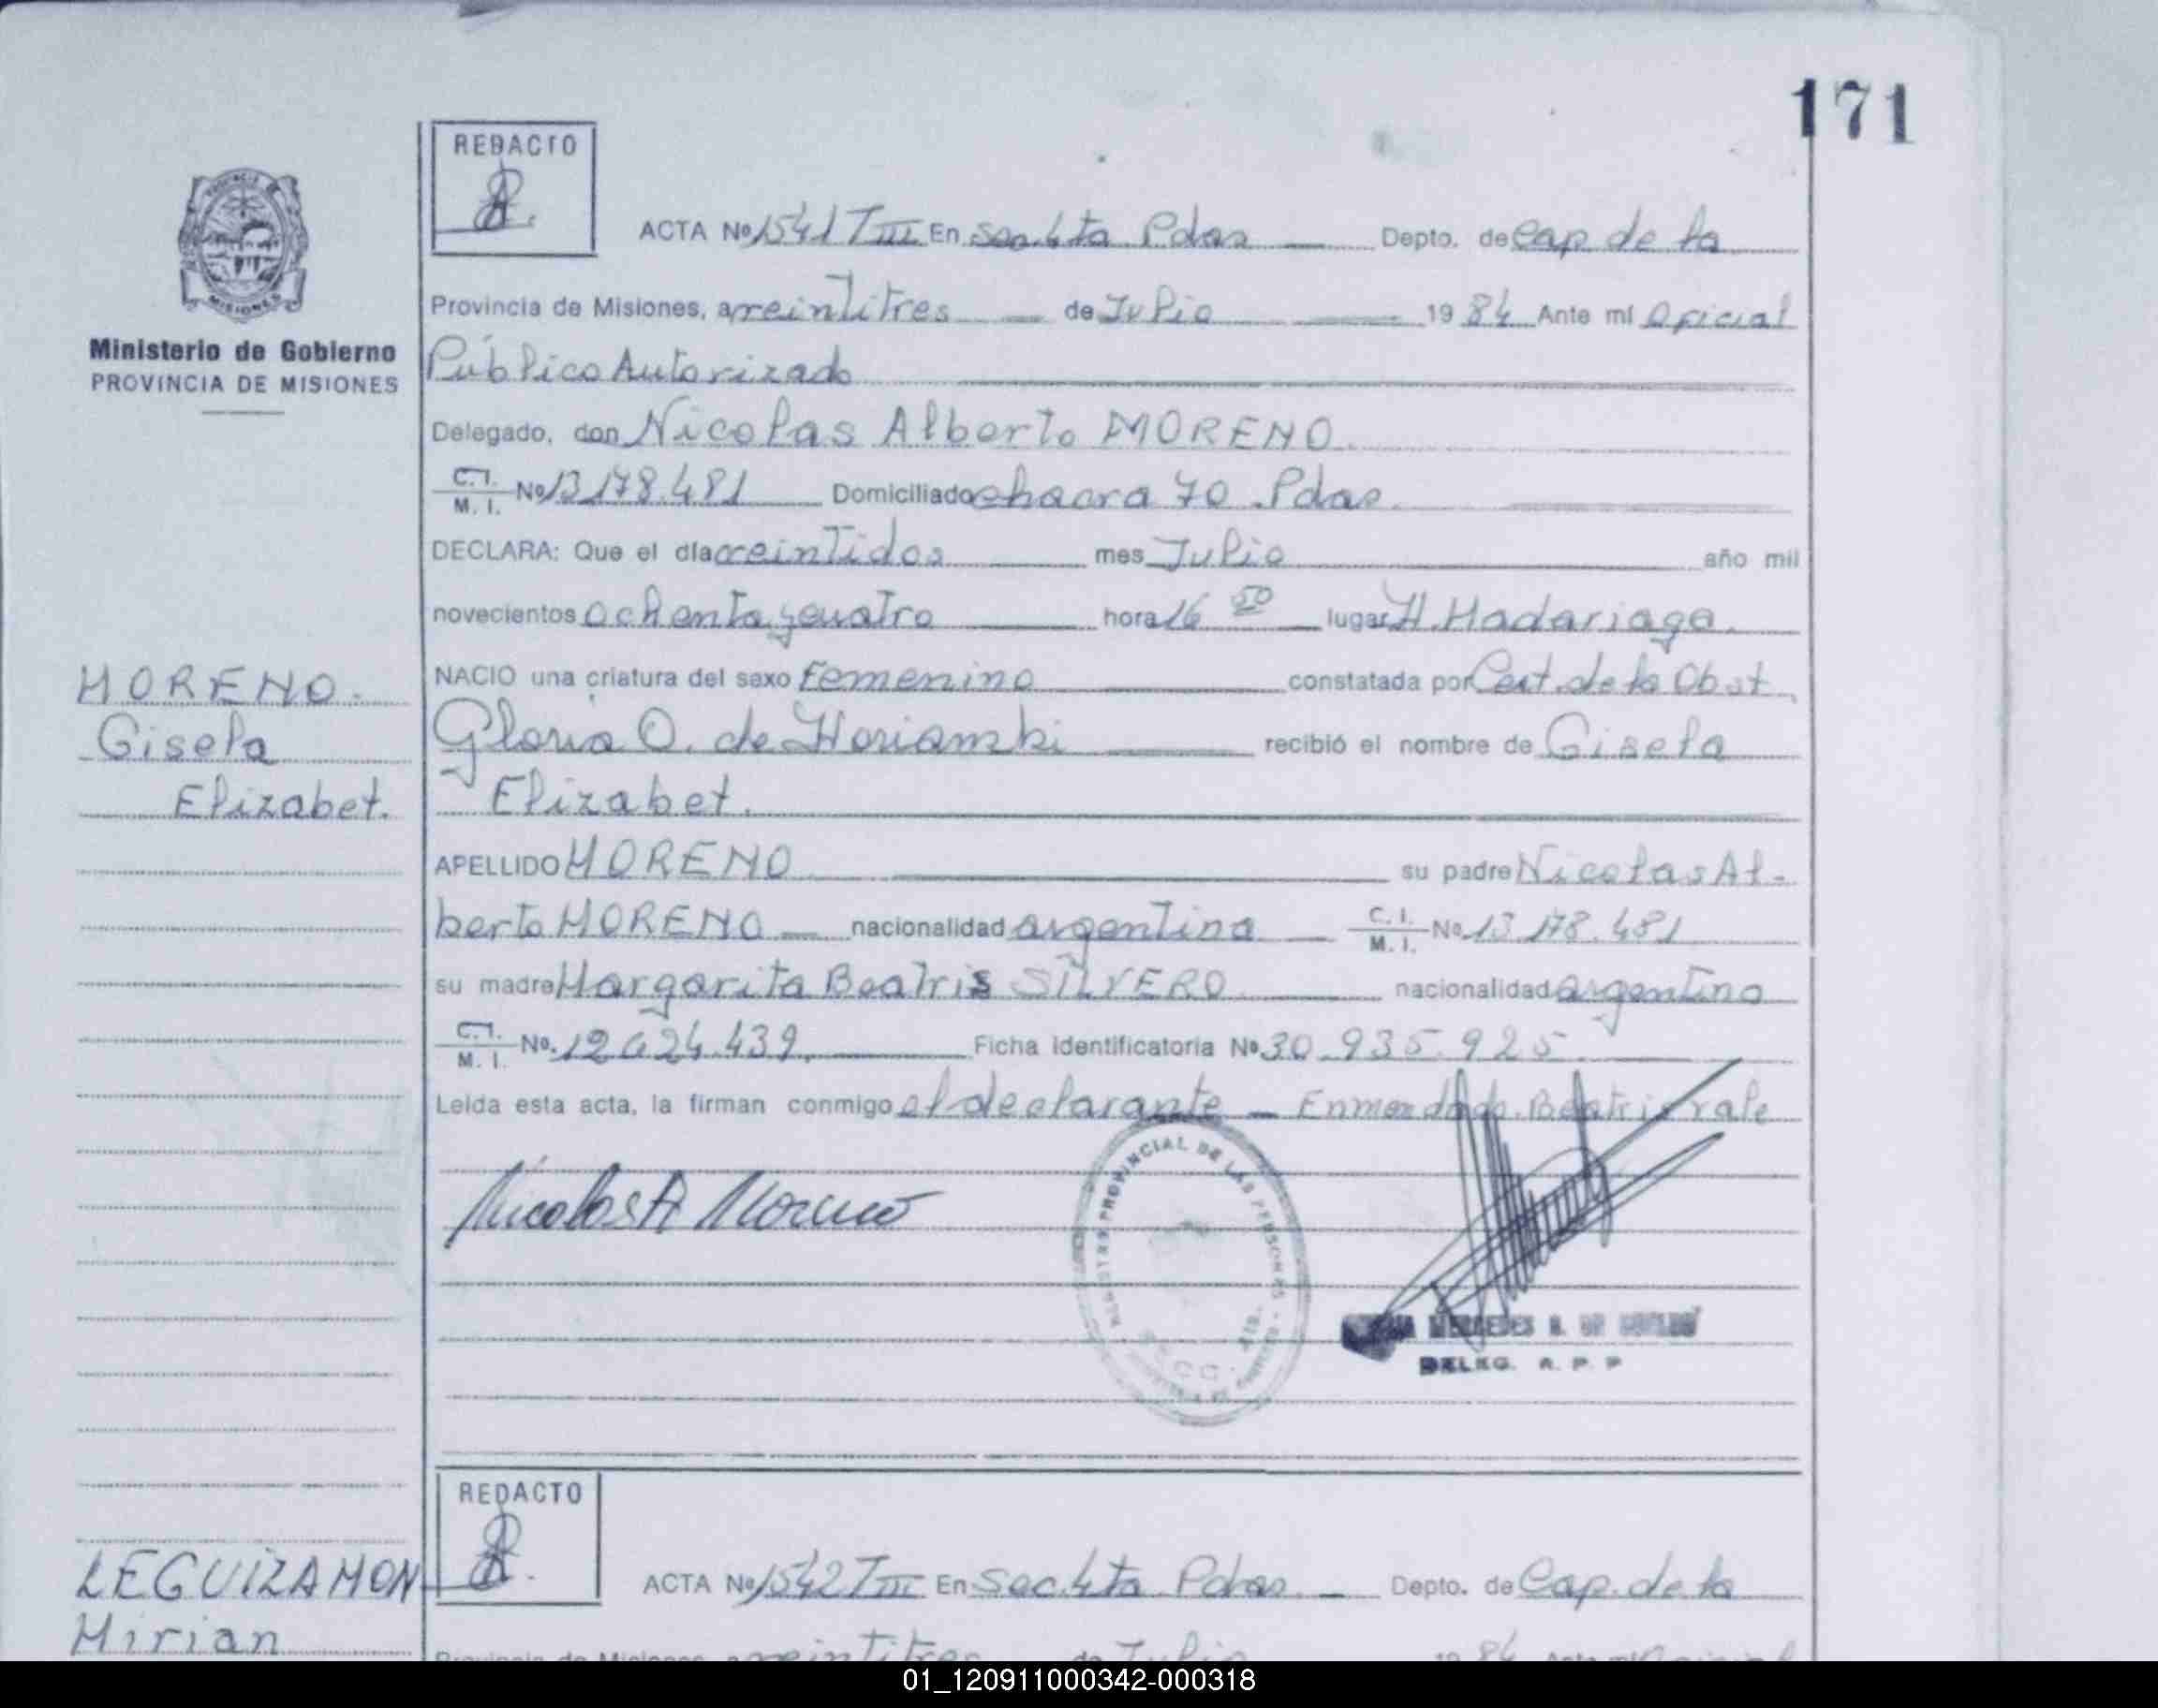 171
REDACTO
ACTA Nº 1541 T III En Sec. 4ta Pdas Depto. de Cap. de la
Provincia de Misiones, a veintitres de Julio 1984 Ante mí Oficial
Ministerio de Gobierno
PROVINCIA DE MISIONES
Público Autorizado
Delegado, don Nicolas Alberto MORENO.
C.I. M.I. Nº 13.178.481 Domiciliado chacra 70 Pdas.
DECLARA: Que el día veintidos mes Julio año mil
novecientos ochenta y cuatro hora 16 50 lugar H. Madariaga.
MORENO.
Gisela
Elizabet.
NACIO una criatura del sexo Femenino constatada por Cert. de la Obst
Gloria O. de recibió el nombre de Gisela
Elizabet.
APELLIDO MORENO su padre Nicolas Al-
berto MORENO nacionalidad argentina C.I. M.I. Nº 13.178.481
su madre Margarita Beatris SILVERO nacionalidad argentina
C.I. M.I. Nº. 12.624.439. Ficha Identificatoria Nº 30.935.925
Leida esta acta, la firman conmigo el declarante Enmendado. Beatris vale
Nicolas A Moreno
PROVINCIAL DE LAS PERSONAS
MERCEDES
DELEG. R. P. P
REDACTO
LEGUIZAMON
Mirian
ACTA Nº 1542 T III En Sec. 4ta Pdas. Depto. de Cap. de la
Provincia de Misiones, a veintitres de Julio 1984 Ante mí Oficial
01_120911000342-000318